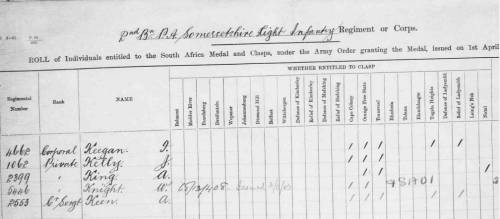 2nd Bn P.A. Somersetshire Light Infantry Regiment or Corps.
ROLL of Individuals entitled to the South Africa Medal and Clasps, under the Army Order granting the Medal, issued on 1st April
WHETHER ENTITLED TO CLASP
Regimental Number Rank NAME Belmont Modder River Paardeberg Driefontein Wepener Johannesburg Diamond Hill Belfast Wittebergen Defence of Kimberley Relief of Kimberley Defence of Mafeking Relief of Mafeking Cape Colony Orange Free State Transvaal Rhodesia Talana Elandslaagte Tugela Heights Defence of Ladysmith Relief of Ladysmith Laing's Nek Natal
4662 Corporal Keegan. T. / / / / /
1062 Private Kelly. J. / / /
2399 " King. A. / / /
5446 " Knight. W.
2553 Cr Sergt Keen. A. / / / / /